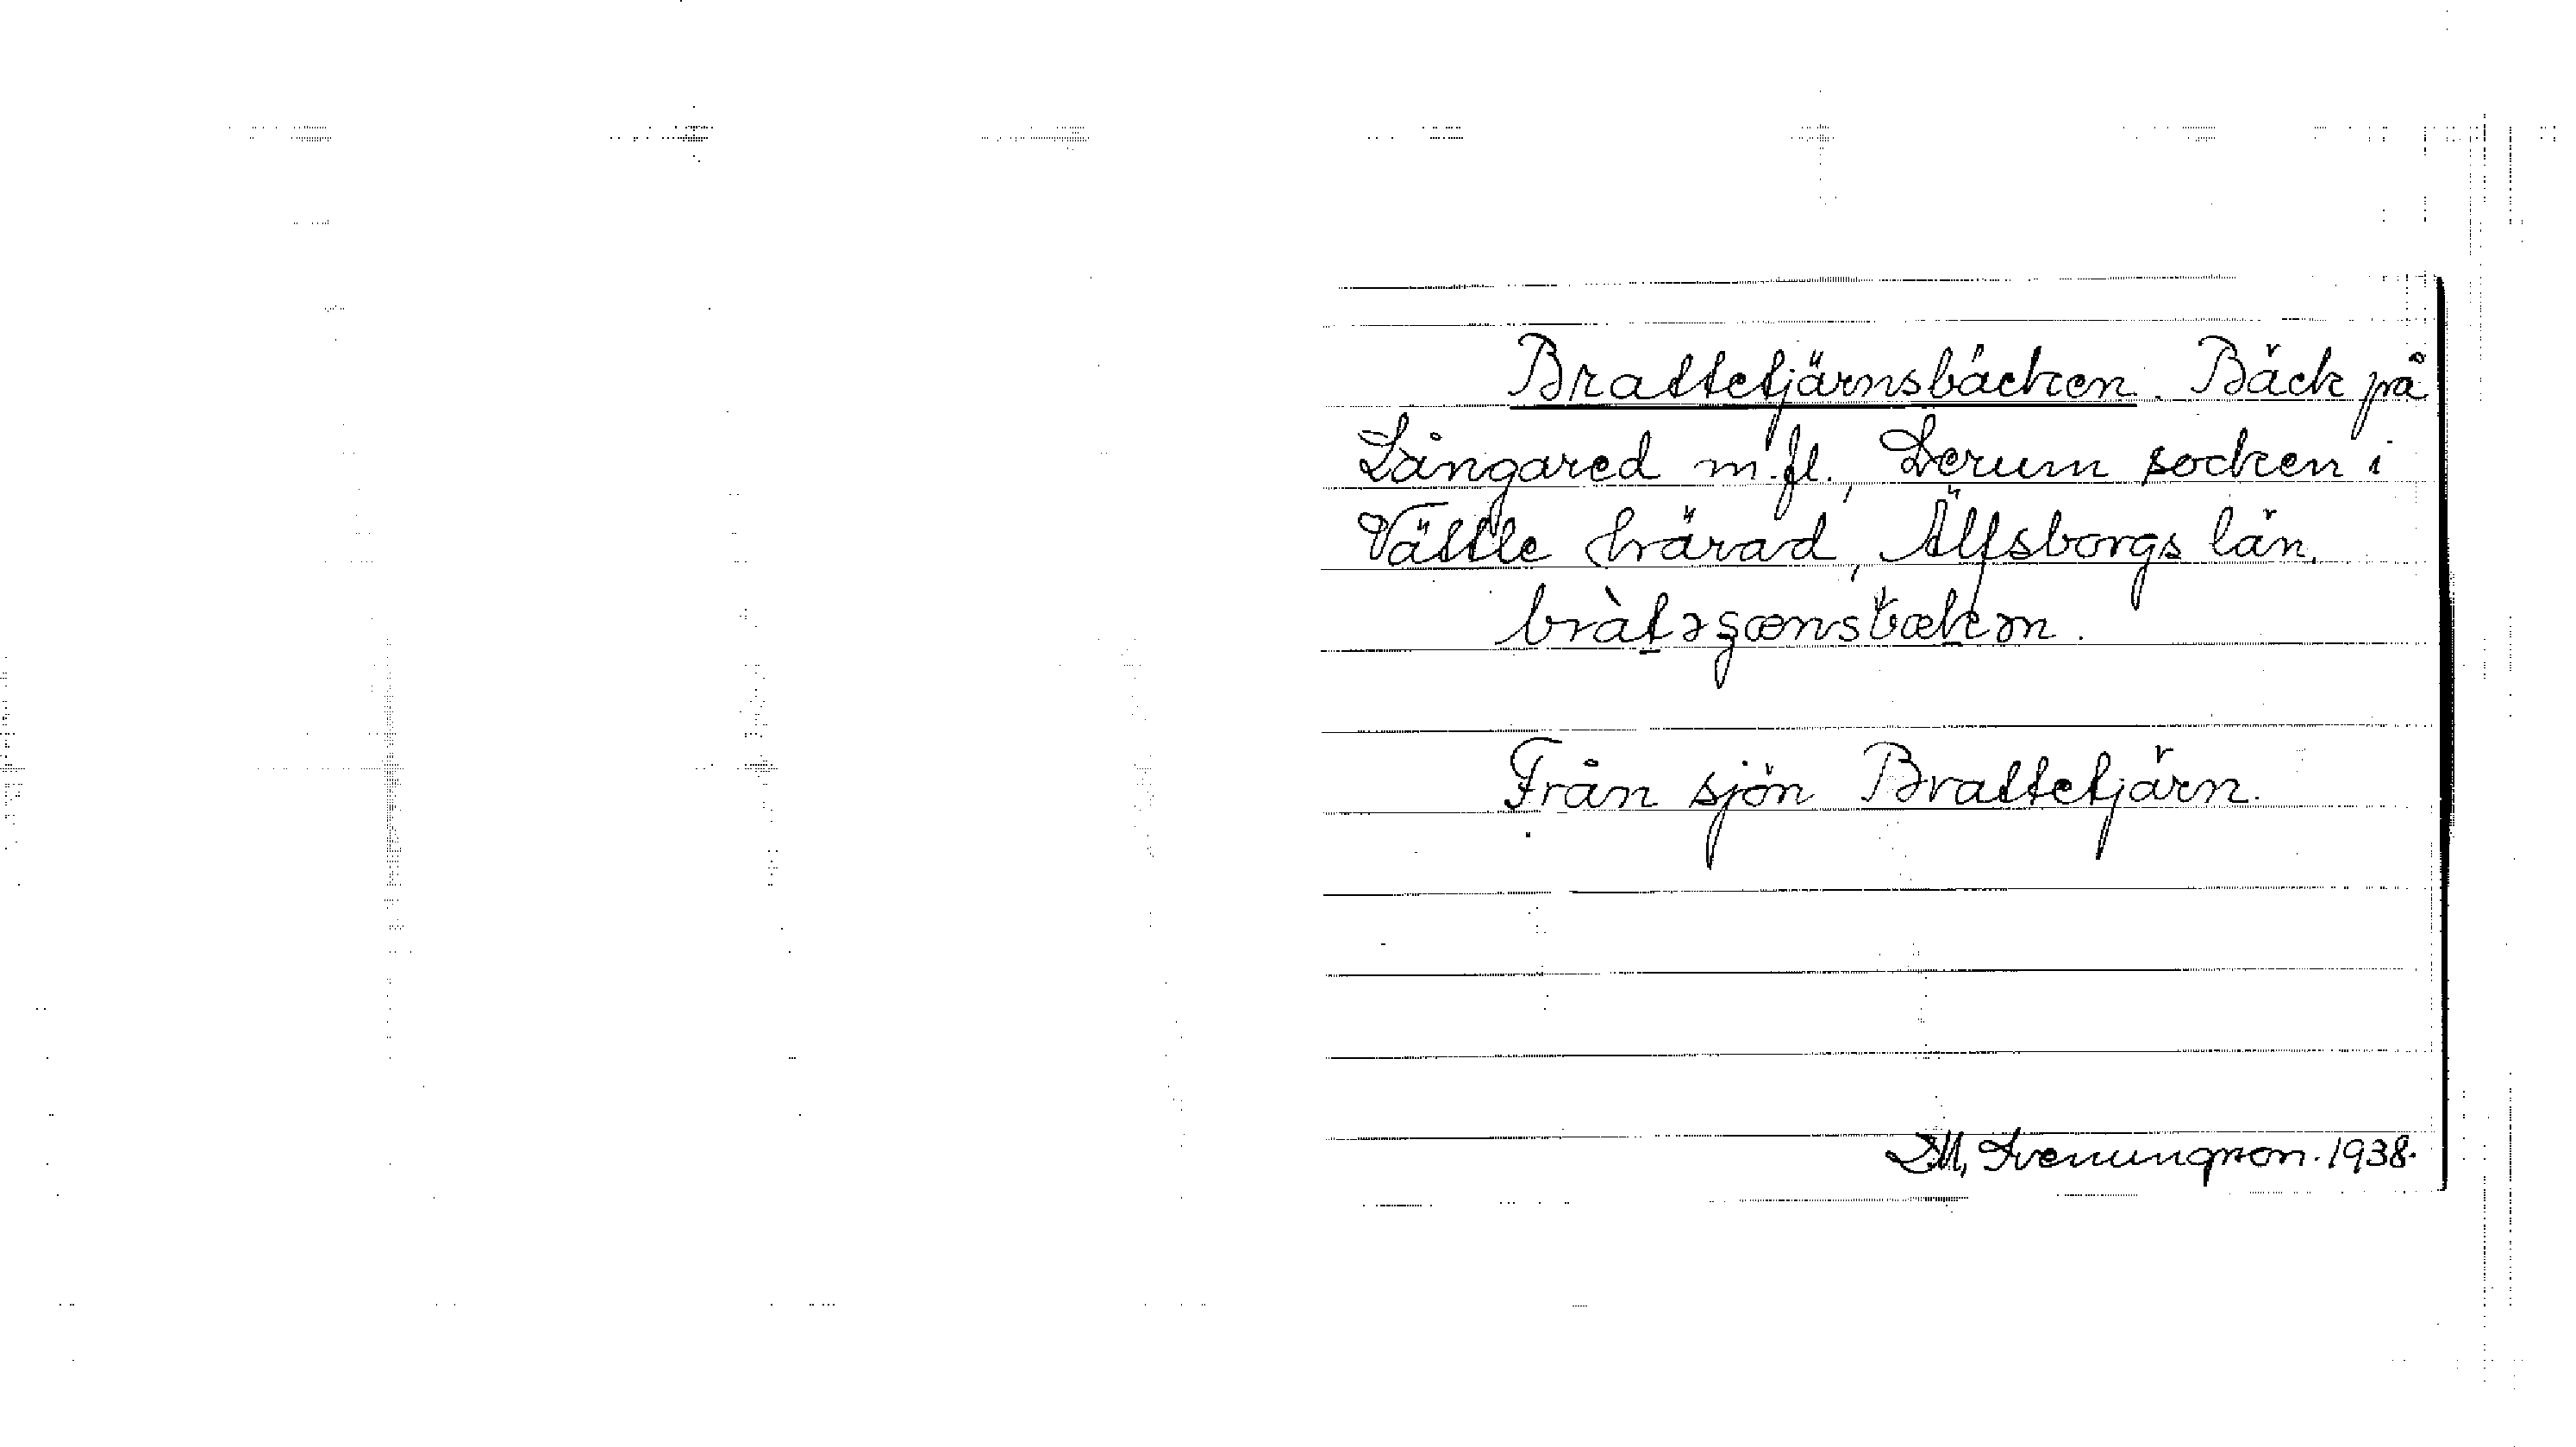 Brattetjärnsbäcken. Bäck på
Långared m.fl., Lerum socken i
Vättle härad, Älfsborgs län.
Från sjön Brattetjärn.
1938.